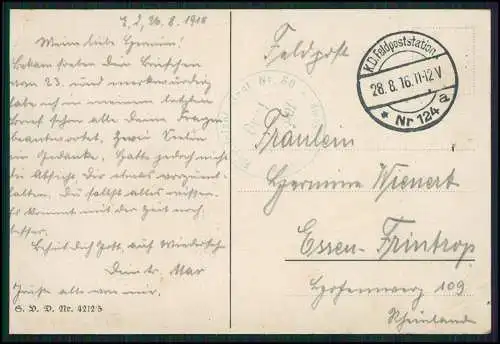 26.8.1916
Meine liebe Hermine!
Bekam soeben dein Briefchen
vom 23. und merkwürdig
habe ich in meinem letzten
Brief schon alle deine Fragen
beantwortet,
ein Gedanke. Hatte jedoch nicht
die Absicht dir etwas vorzuent-
halten. Du sollst alles wissen.
Es kommt mit der Zeit noch
besser.
Behüt dich Gott, auf Wiedersehn
Dein tr. Max
Grüße alle von mir.
S. V. D. Nr. 4212/5
Feldpost
K.D. Feldpoststation
28.8.16. 11-12 V
* Nr 124 a
Nr. 80
Fräulein
Hermine Wienert
Essen-Frintrop
109
Rheinland